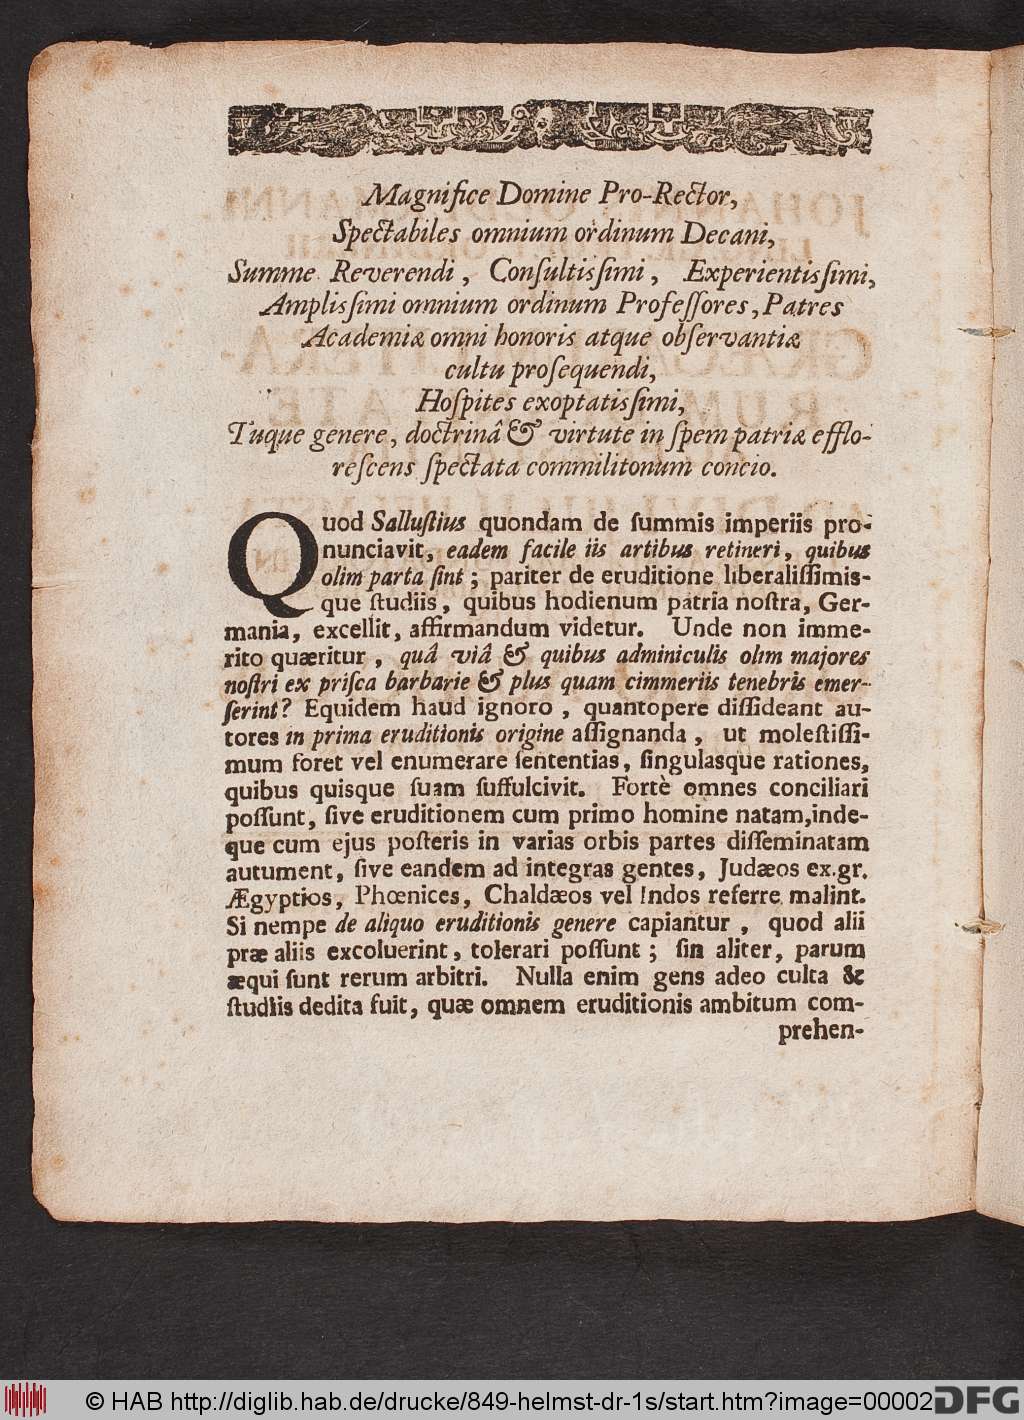 Magnifice Domine Pro-Rector,
Spectabiles omnium ordinum Decani,
Summe Reverendi, Conſultisſimi, Experientisſimi,
Amplisſimi omnium ordinum Profeſſores, Patres
Academiæ omni honoris atque obſervantiæ
cultu proſequendi,
Hoſpites exoptatisſimi,
Tuque genere, doctrinâ & virtute in ſpem patriæ efflo-
reſcens ſpectata commilitonum concio.
Quod Salluſtius quondam de ſummis imperiis pro-
nunciavit, eadem facile iis artibus retineri, quibus
olim parta ſint; pariter de eruditione liberaliſſimis-
que ſtudiis, quibus hodienum patria noſtra, Ger-
mania, excellit, affirmandum videtur. Unde non imme-
rito quæritur, quâ viâ & quibus adminiculis olim majores
noſtri ex priſca barbarie & plus quam cimmeriis tenebris emer-
ſerint? Equidem haud ignoro, quantopere diſſideant au-
tores in prima eruditionis origine aſſignanda, ut moleſtiſſi-
mum foret vel enumerare ſententias, ſingulasque rationes,
quibus quisque ſuam ſuffulcivit. Fortè omnes conciliari
poſſunt, ſive eruditionem cum primo homine natam, inde-
que cum ejus poſteris in varias orbis partes diſſeminatam
autument, ſive eandem ad integras gentes, Judæos ex.gr.
Ægyptios, Phœnices, Chaldæos vel Indos referre malint.
Si nempe de aliquo eruditionis genere capiantur, quod alii
præ aliis excoluerint, tolerari poſſunt; ſin aliter, parum
æqui ſunt rerum arbitri. Nulla enim gens adeo culta &
ſtudiis dedita fuit, quæ omnem eruditionis ambitum com-
prehen-
© HAB http://diglib.hab.de/drucke/849-helmst-dr-1s/start.htm?image=00002
DFG